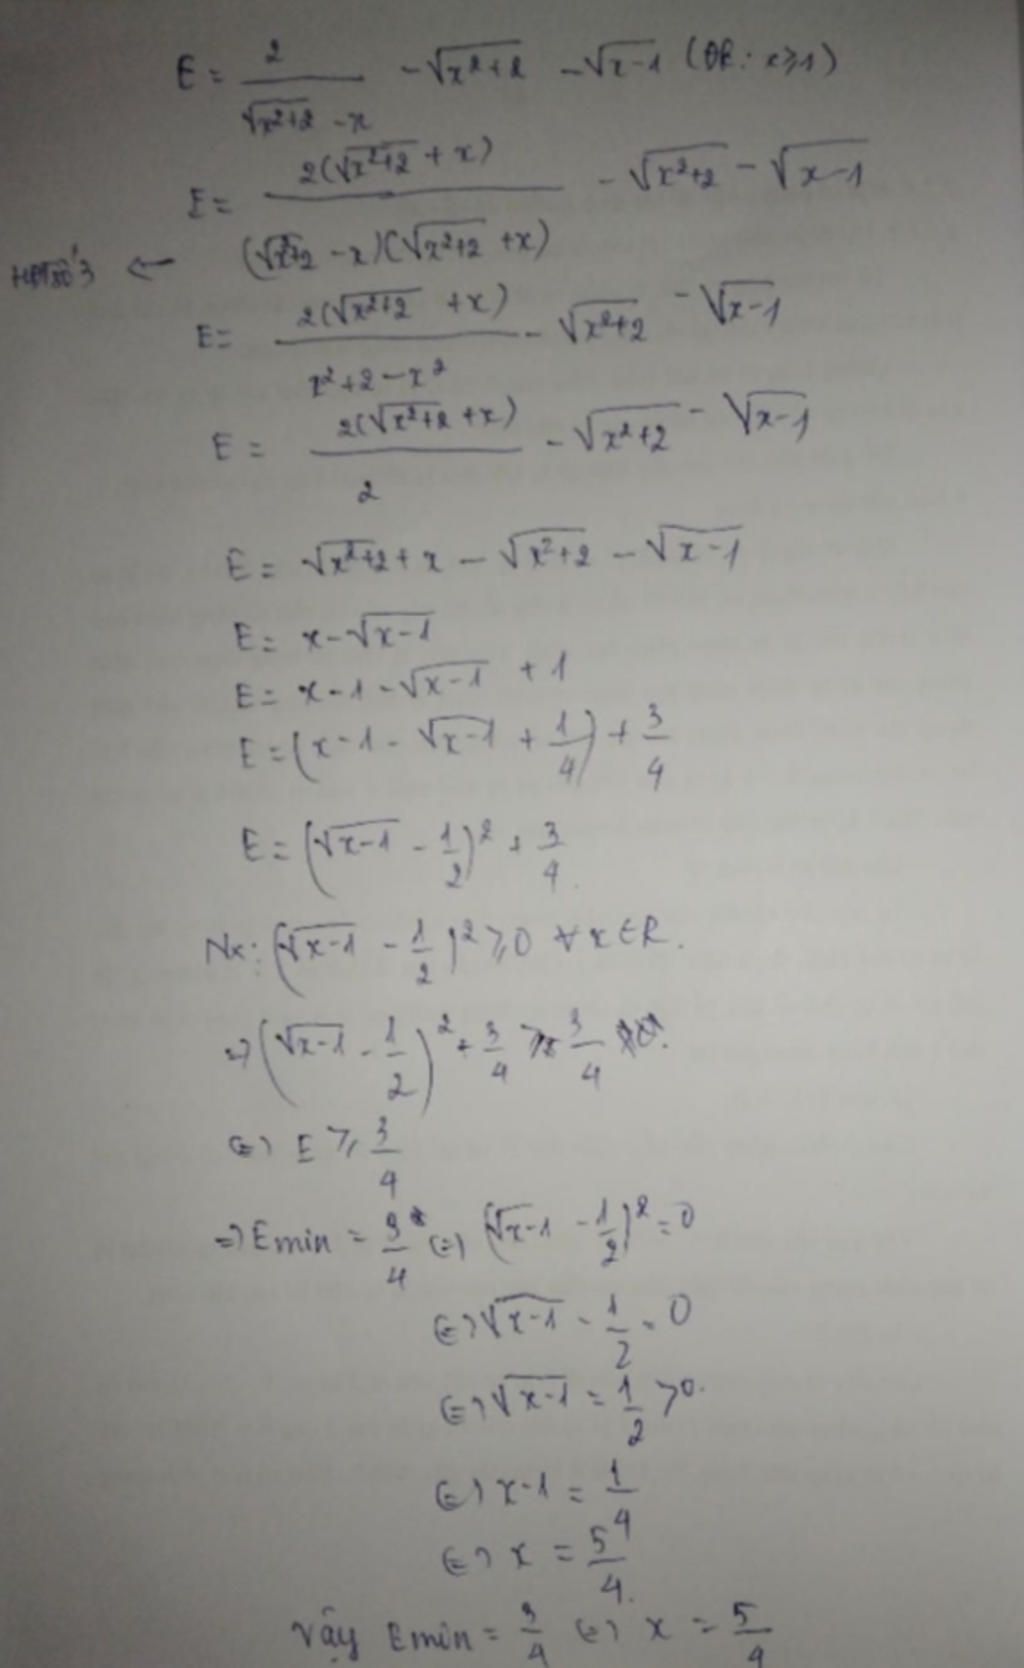 E = 2 / (√(x²+2) - x) - √(x²+2) - √(x-1) (ĐK: x ≥ 1)
E = 2(√(x²+2) + x) / ((√(x²+2) - x)(√(x²+2) + x)) - √(x²+2) - √(x-1)
← HĐT số 3
E = 2(√(x²+2) + x) / (x²+2-x²) - √(x²+2) - √(x-1)
E = 2(√(x²+2) + x) / 2 - √(x²+2) - √(x-1)
E = √(x²+2) + x - √(x²+2) - √(x-1)
E = x - √(x-1)
E = x - 1 - √(x-1) + 1
E = (x - 1 - √(x-1) + 1/4) + 3/4
E = (√(x-1) - 1/2)² + 3/4.
Nx: (√(x-1) - 1/2)² ≥ 0 ∀x ∈ R.
=> (√(x-1) - 1/2)² + 3/4 ≥ 3/4
(=) E ≥ 3/4
=> Emin = 3/4 (=) (√(x-1) - 1/2)² = 0
(=) √(x-1) - 1/2 = 0
(=) √(x-1) = 1/2 > 0.
(=) x-1 = 1/4
(=) x = 5/4.
Vậy Emin = 3/4 (=) x = 5/4